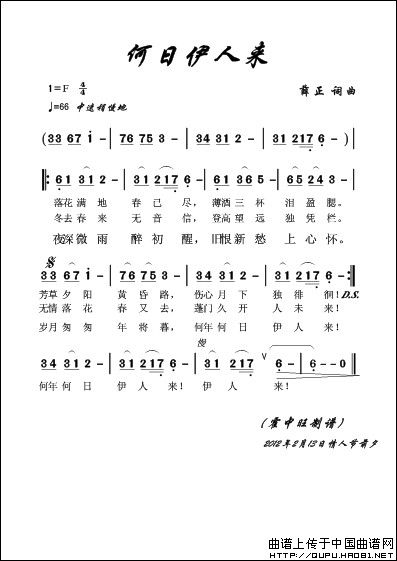 何日伊人来
1=F 4/4
薛正 词曲
♩=66 中速稍慢地
(33 67 i - | 76 75 3 - | 34 31 2 - | 31 217 6 - ) |
‖: 61 31 2 - | 31 217 6 - | 61 365 - | 65 24 3 - |
落花满地 春已尽, 薄酒三杯 泪盈腮。
冬去春来 无音信, 登高望远 独凭栏。
夜深微雨 醉初醒, 旧恨新愁 上心怀。
33 67 i - | 76 75 3 - | 34 31 2 - | 31 217 6 - :‖
芳草夕阳 黄昏路, 伤心月下 独徘徊! D.S.
无情落花 春又去, 蓬门久开 人未来!
岁月匆匆 年将暮, 何年何日 伊人来!
慢
34 31 2 - | 31 217 6 - | 31 217 | 6 - | 6 - - 0 ‖
何年何日 伊人来! 伊人 来!
(霍中旺制谱)
2012年2月13日情人节前夕
曲谱上传于中国曲谱网
HTTP://QUPU.HAO81.NET